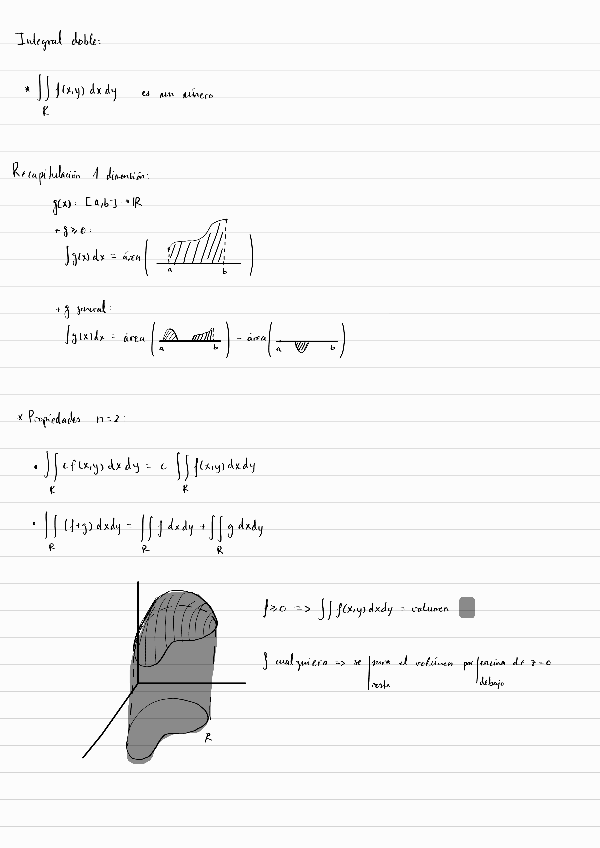 Integral doble:
* ∬ f(x,y) dx dy es un número
R
Recapitulación 1 dimensión:
g(x): [a,b] → ℝ
+ g ≥ 0:
∫ g(x) dx = área ( )
a b
+ g general:
∫ g(x) dx = área ( ) - área ( )
a b a b
* Propiedades n=2:
• ∬ c f(x,y) dx dy = c ∬ f(x,y) dx dy
R R
• ∬ (f+g) dx dy = ∬ f dx dy + ∬ g dx dy
R R R
f ≥ 0 => ∬ f(x,y) dx dy = volumen
f cualquiera => se | suma el volúmen por | encima de z=0
resta debajo
R